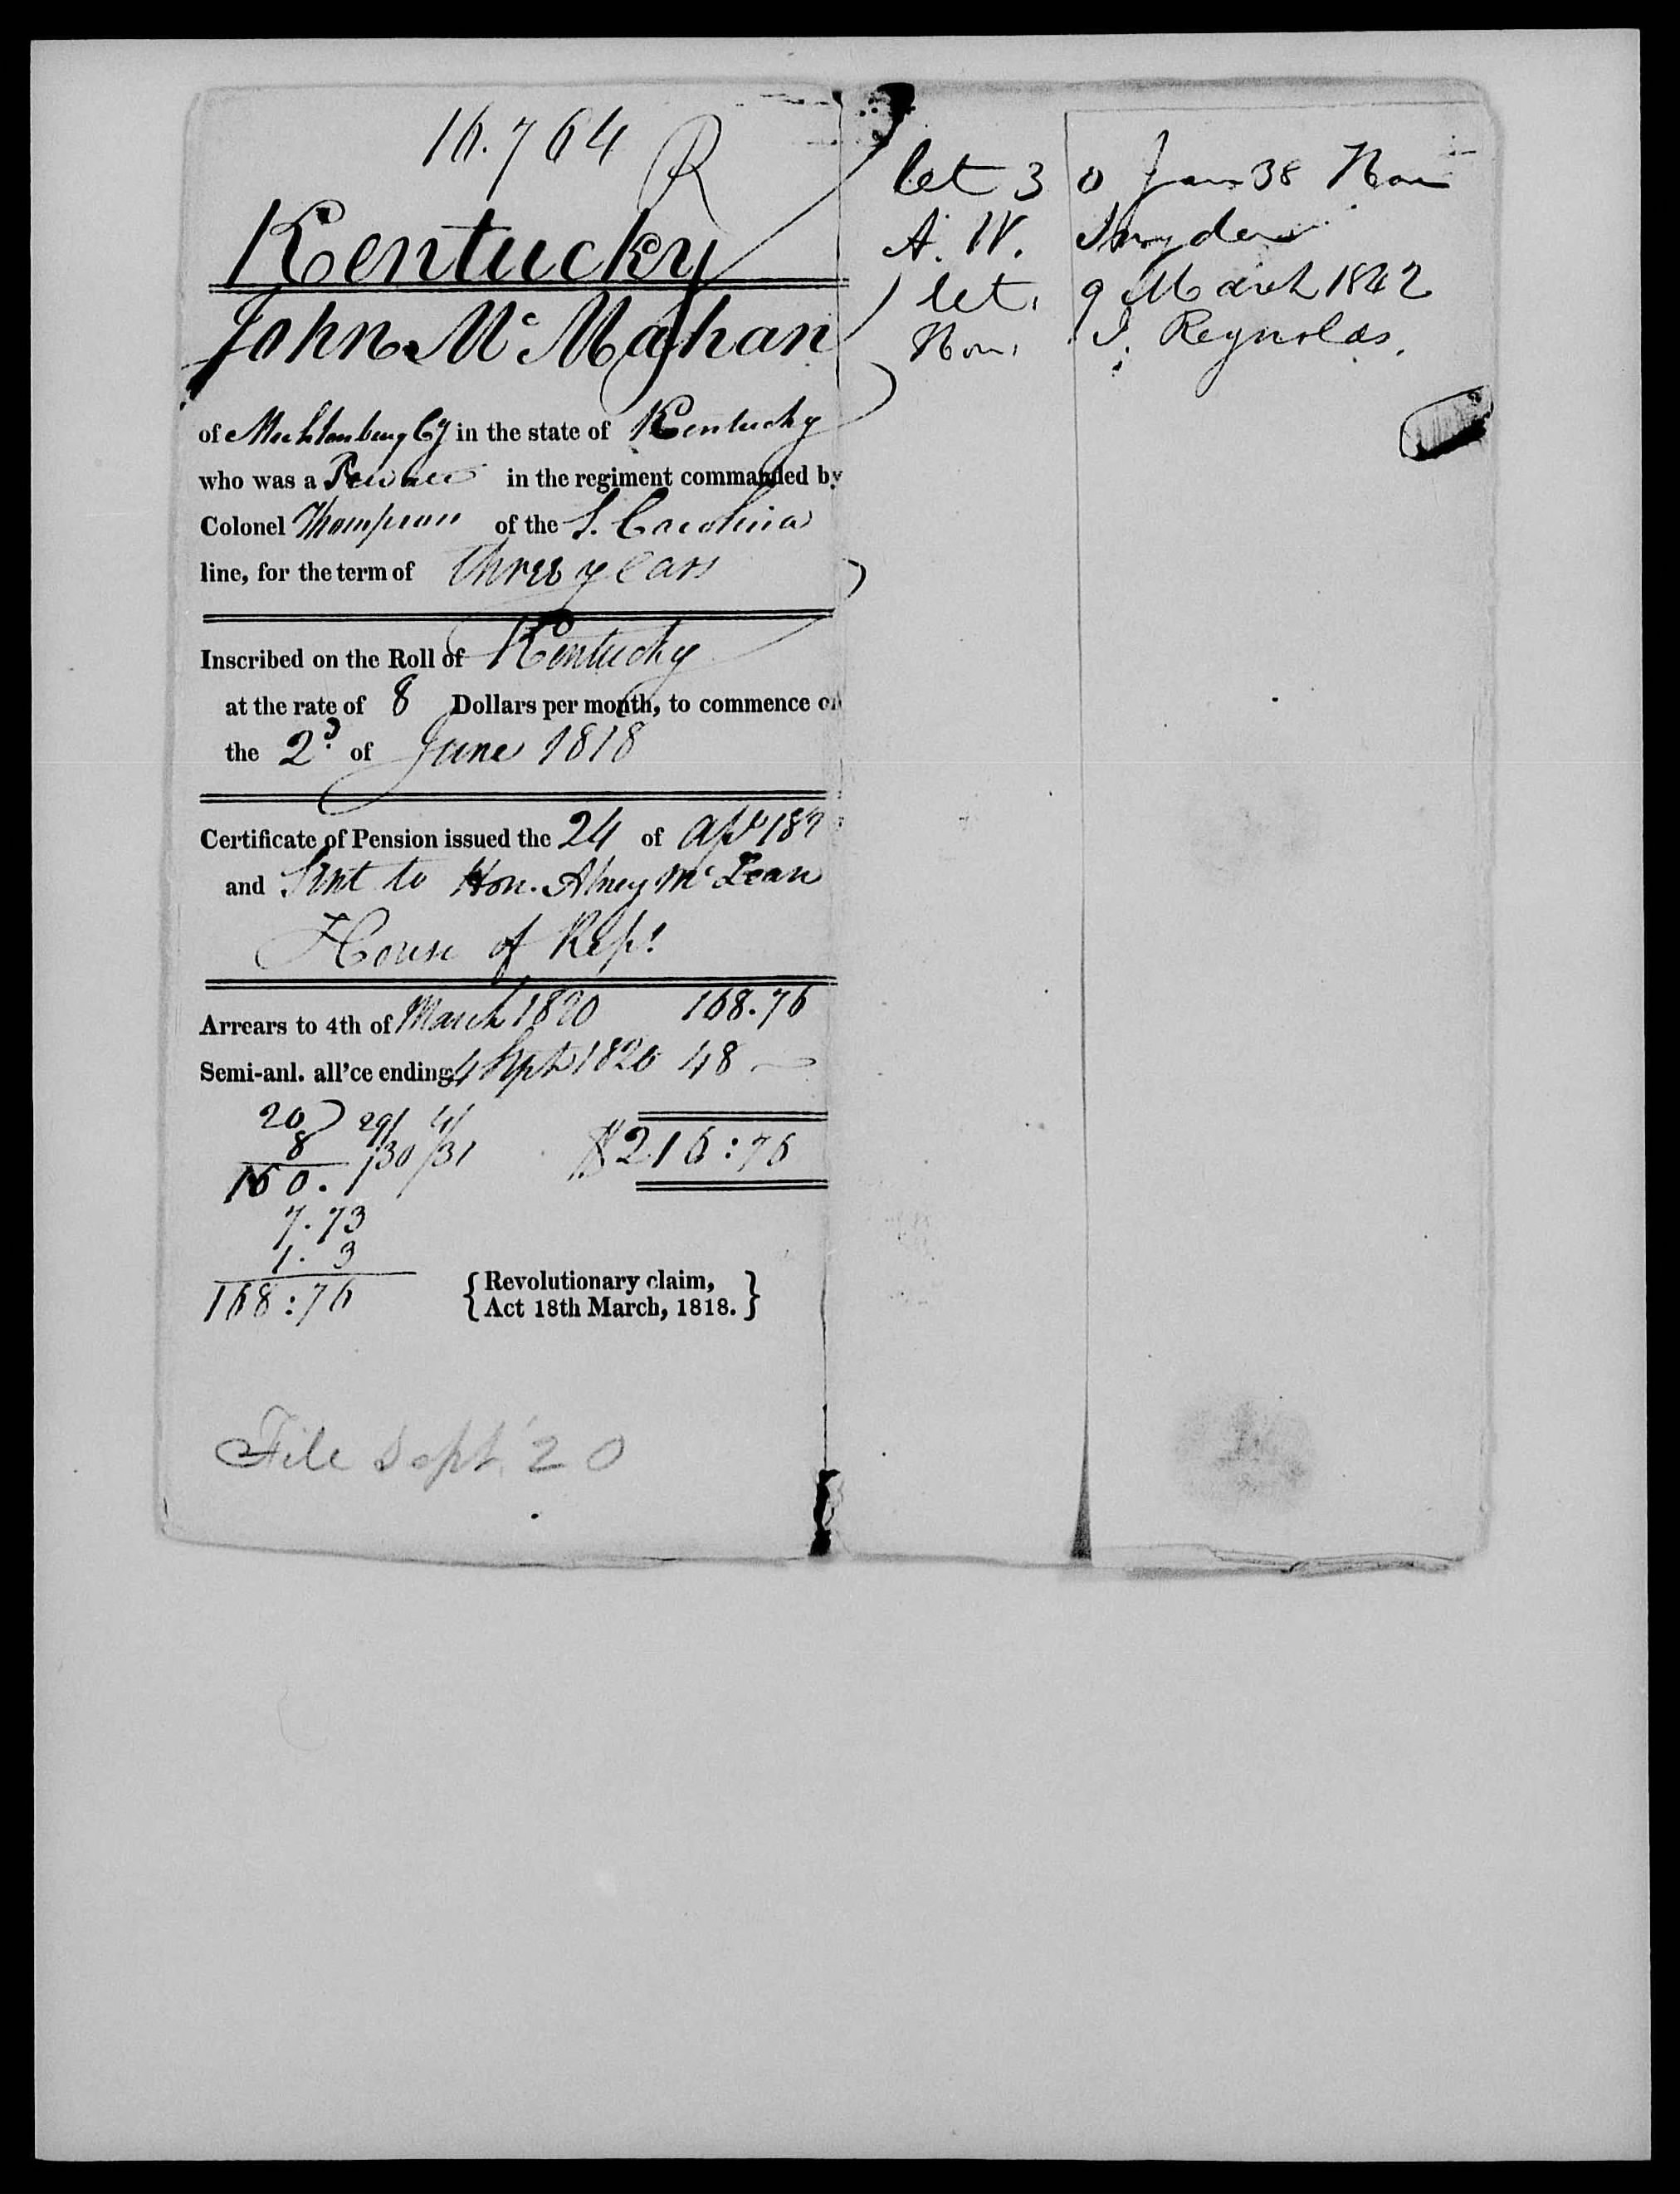 16.764
R
Kentucky
John McMahan
of Muhlenburg Cy in the state of Kentucky
who was a Private in the regiment commanded by
Colonel Thompson of the S. Carolina
line, for the term of three years
Inscribed on the Roll of Kentucky
at the rate of 8 Dollars per month, to commence on
the 2d of June 1818
Certificate of Pension issued the 24 of Apl 182
and Sent to Hon. Alney McLean
House of Reps
Arrears to 4th of March 1820 168.76
Semi-anl. all'ce ending 4 Sept 1820 48
20 29/ 4/
8 /30 /31
160.
$216:76
7.73
1. 3
168:76
{Revolutionary claim,
Act 18th March, 1818.}
File Sept 20
let 30 Jan 38 Hon
A. W. Snyder
let. 9 March 1842
Hon. J. Reynolds.